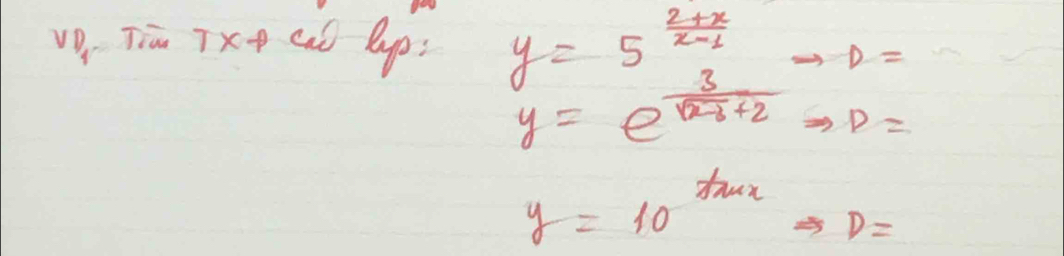 VD1. Tìm TXĐ các hàm: y = 5^((2+x)/(x-1)) → D =
y = e^(3/(√(x-3)+2)) ⇒ D =
y = 10^(tanx) ⇒ D =